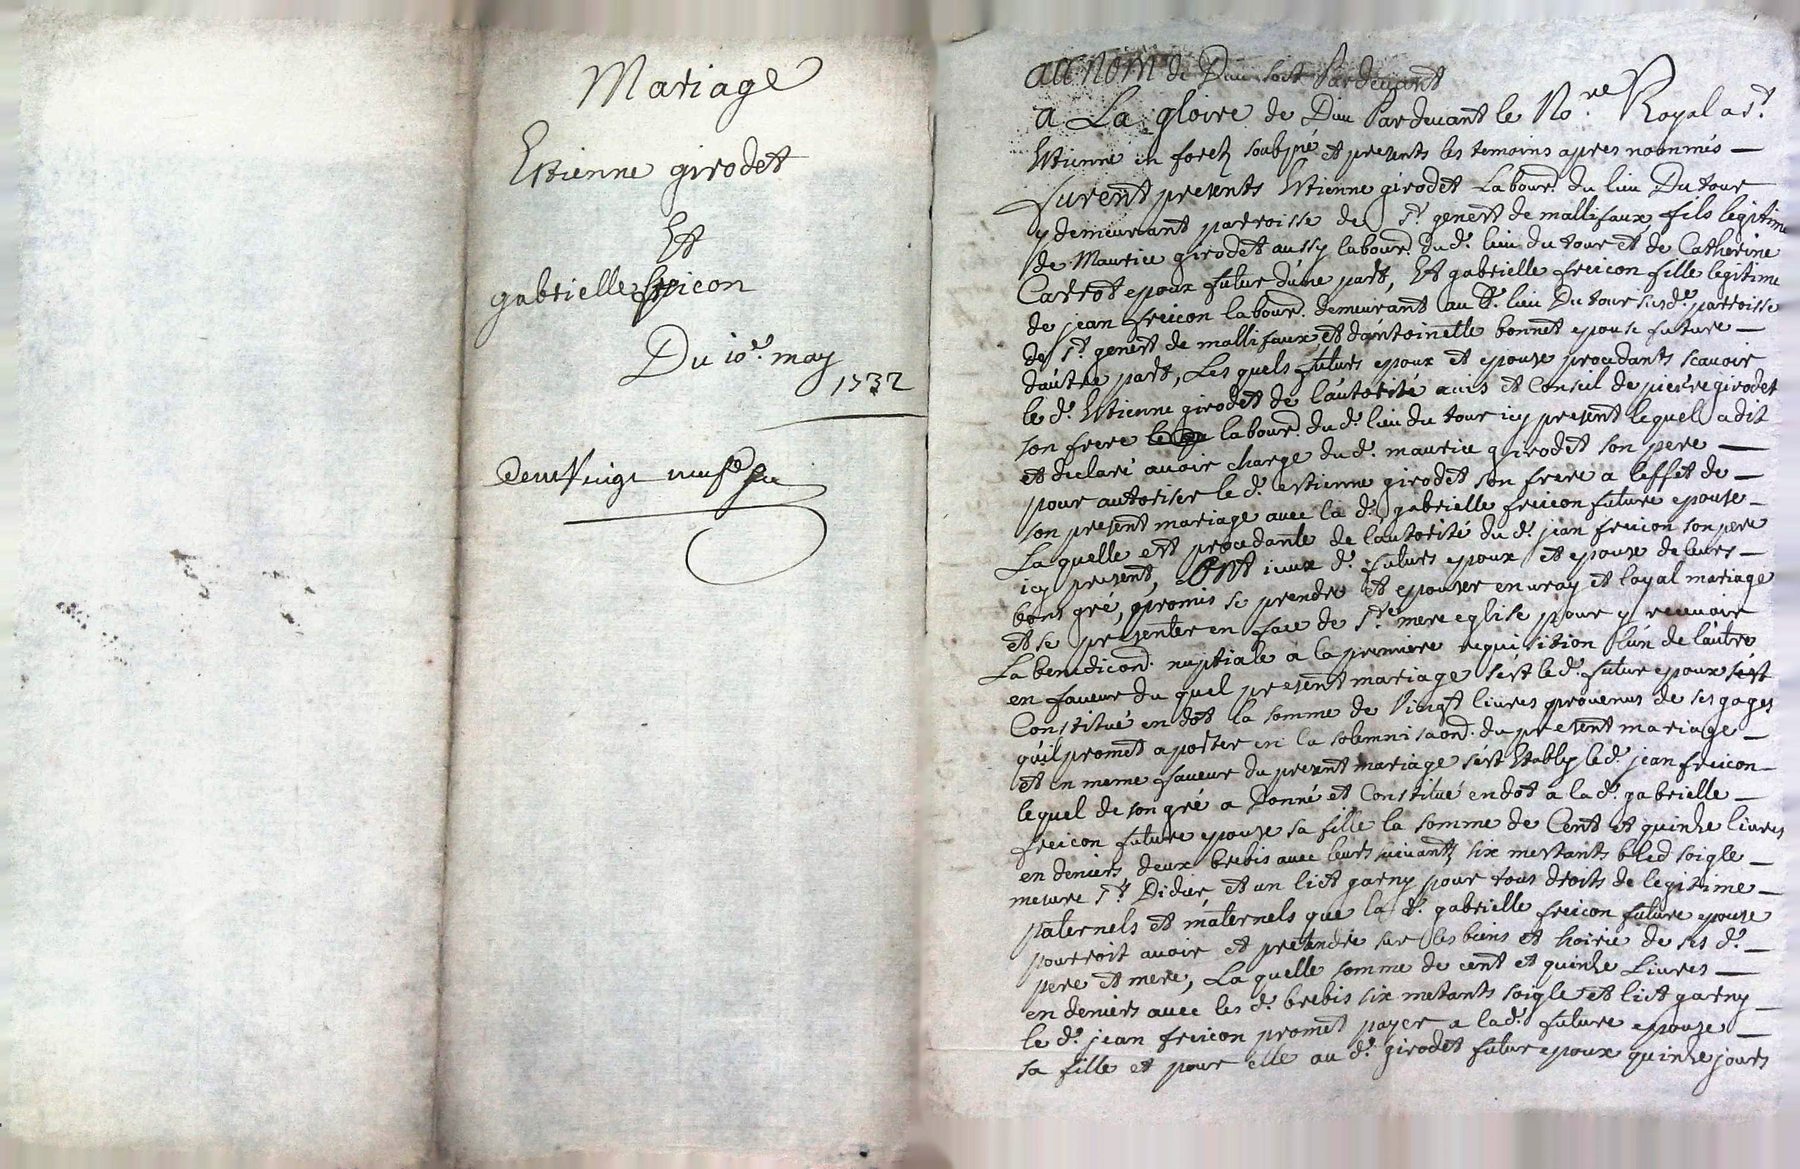 Mariage
Estienne girodet
Et
gabrielle freicon
Du 10e. may
1732
deux Vingt neuf
au nom de Dieu soit Pardevant
a La gloire de Dieu Pardevant le No.re Royal a st.
Estienne en forest soubsné et presents les temoins apres nommés —
furent presents Estienne girodet Labour. du lieu Du tour
y demeurant parroisse de st. genest de mallifaux, fils legitime
de Maurice girodet aussy labour. dud. lieu du tour et de Catherine
Carrot epoux futur d'une part, Et gabrielle freicon fille legitime
de jean freicon labour. demeurant au d. lieu Du tour susd. parroisse
de st. genest de mallifaux, et dantoinette bonnet epouse future —
dautre part, Les quels futurs epoux et epouse procedants scavoir
le d. Estienne girodet de l'autorité avis et Conseil de pierre girodet
son frere labour. dud. lieu du tour icy present lequel a dit
et declaré avoir charge dud. maurice girodet son pere —
pour autoriser le d. estienne girodet son frere a leffet de —
son present mariage avec la d. gabrielle freicon future epouse —
La quelle est procedante de l'autorité du d. jean freicon son pere
icy present, Ont iceux d. futurs epoux et epouse de leurs —
bons gré, promis se prendre et epouser en vray et loyal mariage
et se presenter en face de ste. mere eglise pour y recevoir
La benediction. nuptiale a la premiere requisition l'un de l'autre
en faveur du quel present mariage s'est le d. futur epoux
Constitué en dot la somme de Vingt livres provenus de ses gages
qu'il promet aporter en la solemnisaon. du present mariage —
et en meme faveur du present mariage s'est Etably le d. jean freicon —
lequel de son gré a Donné et Constitué en dot a la d. gabrielle —
freicon future epouse sa fille la somme de Cent et quinze livres
en deniers, deux brebis avec leurs suivants six mestants bled soigle —
mesure st. Didier, et un lict garny pour tous droits de legitime —
paternels et maternels que la d. gabrielle freicon future epouse
pourroit avoir et pretendre sur les biens et hoirie de ses d. —
pere et mere, La quelle somme de cent et quinze Livres —
en deniers avec les d. brebis six metants soigle et lict garny —
le d. jean freicon promet payer a lad. future epouse —
sa fille et pour elle au d. girodet futur epoux quinze jours